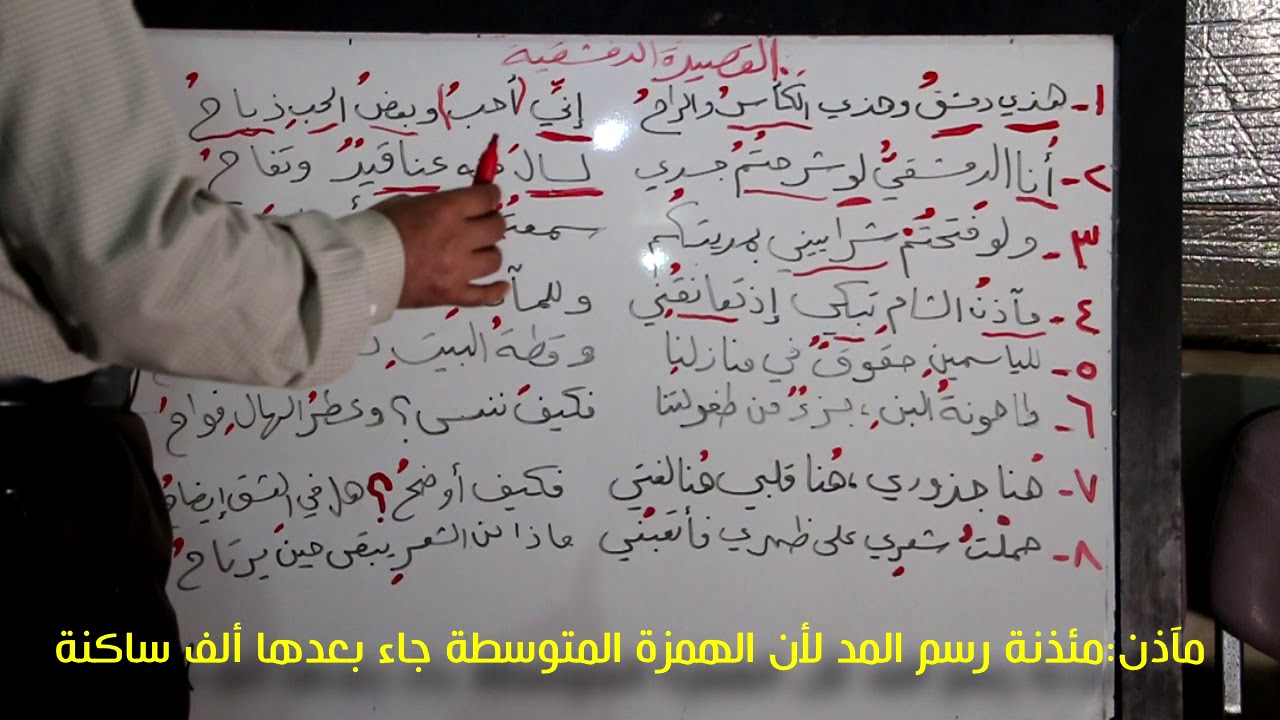 القصيدة الدمشقية
١- هذي دمشقُ وهذي الكأسُ والراحُ إنّي (أحبُ) وبعضُ الحبِ ذباحُ
٢- أنا الدمشقيُّ لو شرحتُمُ جسدي لسالَ عناقيدٌ وتفاحُ
٣- ولو فتحتُمْ شراييني بمديتكُم
٤- مآذنُ الشام تبكي إذ تعانقُني
٥- للياسمينِ حقوقٌ في منازلنا وقطةُ البيتِ
٦- طاحونةُ البنِ، جزءٌ من طفولتنا فكيفَ ننسى؟ وعطرُ الهالِ فواحُ
٧- هُنا جذوري، هُنا قلبي هُنا لغتي فكيف أوضحُ؟ هل في العشق إيضاحُ
٨- حملْتُ شعرِي على ظهري فأتعبَني ماذا من الشعرِ يبقى حينَ يرتاحُ
مآذن:مئذنة رسم المد لأن الهمزة المتوسطة جاء بعدها ألف ساكنة